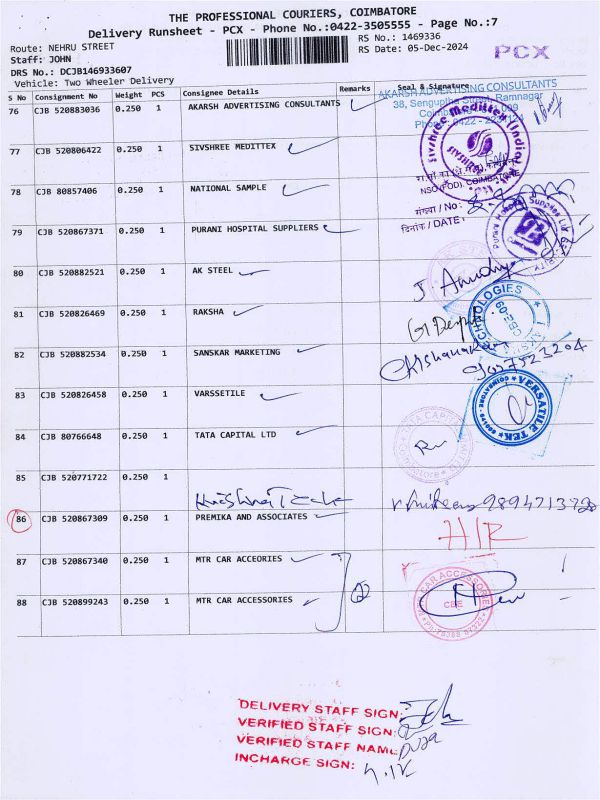 THE PROFESSIONAL COURIERS, COIMBATORE
Delivery Runsheet - PCX - Phone No.:0422-3505555 - Page No.:7
Route: NEHRU STREET
RS No.: 1469336
Staff: JOHN
RS Date: 05-Dec-2024
PCX
DRS No.: DCJB146933607
Vehicle: Two Wheeler Delivery
S No Consignment No Weight PCS Consignee Details Remarks Seal & Signature
AKARSH ADVERTISING CONSULTANTS
76 CJB 520883036 0.250 1 AKARSH ADVERTISING CONSULTANTS
38, Street, Ramnagar
77 CJB 520806422 0.250 1 SIVSHREE MEDITTEX
Sivshree Medittex
78 CJB 80857406 0.250 1 NATIONAL SAMPLE
NSO (FOD), COIMBATORE
संख्या / No:
दिनांक / DATE:
79 CJB 520867371 0.250 1 PURANI HOSPITAL SUPPLIERS
80 CJB 520882521 0.250 1 AK STEEL
81 CJB 520826469 0.250 1 RAKSHA
82 CJB 520882534 0.250 1 SANSKAR MARKETING
83 CJB 520826458 0.250 1 VARSSETILE
VERSATILE TEK
84 CJB 80766648 0.250 1 TATA CAPITAL LTD
TATA CAPITAL
85 CJB 520771722 0.250 1
9894713720
86 CJB 520867309 0.250 1 PREMIKA AND ASSOCIATES
HIR
87 CJB 520867340 0.250 1 MTR CAR ACCEORIES
88 CJB 520899243 0.250 1 MTR CAR ACCESSORIES
2
CAR ACCESSORIES
CBE
DELIVERY STAFF SIGN:
VERIFIED STAFF SIGN:
VERIFIED STAFF NAME:
INCHARGE SIGN: